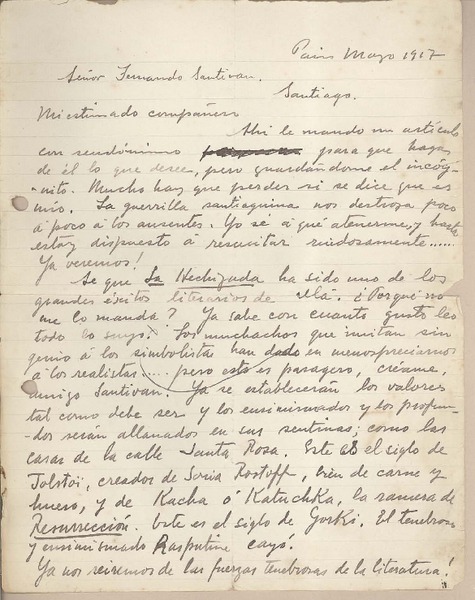 Paris Mayo 1917
Señor Fernando Santivan.
Santiago.
Mi estimado compañero
Ahi le mando un artículo
con seudónimo para que haga
de él lo que desee, pero guardándome el incóg-
nito. Mucho hay que perder si se dice que es
mio. La guerrilla santiaguina nos destroza poco
á poco á los ausentes. Yo sé á qué atenerme, y hasta
estoy dispuesto á resucitar ruidosamente......
Ya veremos!
Se que La Hechizada ha sido uno de los
grandes éxitos literarios de allá. ¿Porqué no
me lo manda? Ya sabe con cuanto gusto leo
todo lo suyo. Los muchachos que imitan sin
genio á los simbolistas han dado en menospreciarnos
á los realistas.... pero esto es pasagero, créame,
amigo Santivan. Ya se establecerán los valores
tal como debe ser y los ensimismados y los profun-
dos serán allanados en sus sentinas; como las
casas de la calle Santa Rosa. Este es el siglo de
Tolstoi, creador de Sonia Rostoff, bien de carne y
hueso, y de Kacha ó Katuchka, la ramera de
Resurrección. Este es el siglo de Gorki. El tenebroso
y ensimismado Rasputine cayó.
Ya nos reiremos de las fuerzas tenebrosas de la literatura!